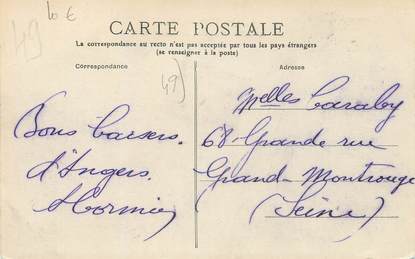 49
10 €
CARTE POSTALE
La correspondance au recto n'est pas acceptée par tous les pays étrangers
(se renseigner à la poste)
Correspondance
Adresse
49)
Bons baisers
d'Angers.
Melles Caraby
68 Grande rue
Grand-Montrouge
(Seine)